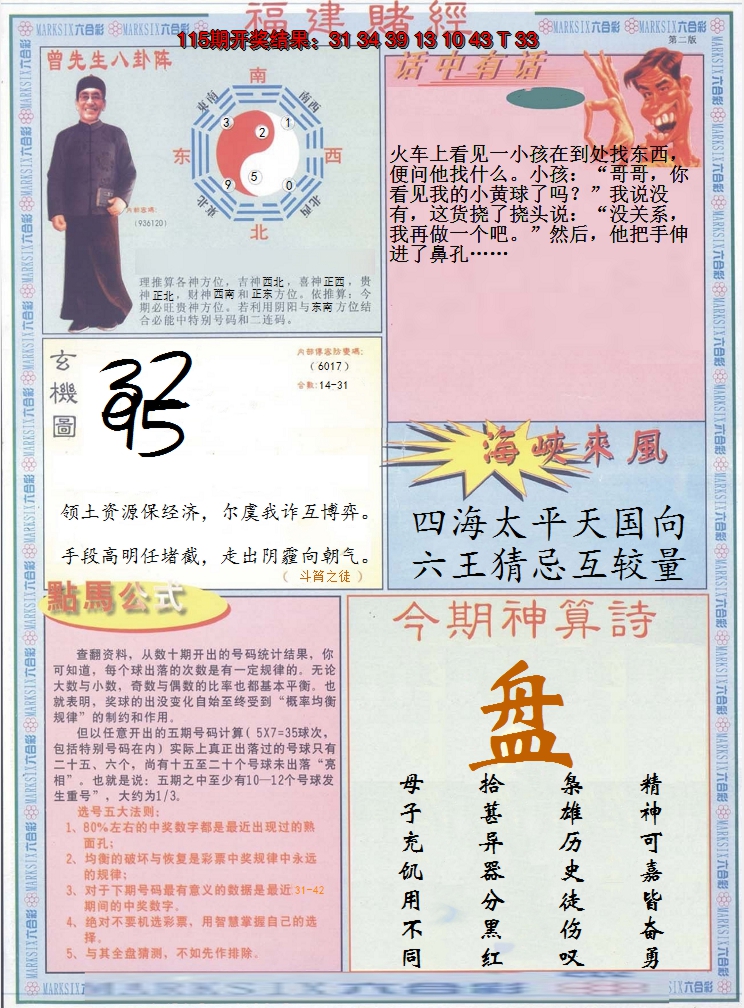 福建賭經
115期开奖结果：31 34 39 13 10 43 T 33
第二版
MARKSIX六合彩
曾先生八卦阵
南
東南
南西
3
2
1
东
西
9
5
0
東北
西北
北
內部密碼:
(936120)
理推算各神方位，吉神西北，喜神正西，贵
神正北，财神西南和正东方位。依推算：今
期必旺贵神方位。若利用阴阳与东南方位结
合必能中特别号码和二连码。
话中有话
火车上看见一小孩在到处找东西，
便问他找什么。小孩：“哥哥，你
看见我的小黄球了吗？”我说没
有，这货挠了挠头说：“没关系，
我再做一个吧。”然后，他把手伸
进了鼻孔……
玄機圖
(6017)
合数:14-31
领土资源保经济，尔虞我诈互博弈。
手段高明任堵截，走出阴霾向朝气。
（ 斗筲之徒 ）
海峡來風
四海太平天国向
六王猜忌互较量
點馬公式
查翻资料，从数十期开出的号码统计结果，你
可知道，每个球出落的次数是有一定规律的。无论
大数与小数，奇数与偶数的比率也都基本平衡。也
就表明，奖球的出没变化自始至终受到“概率均衡
规律”的制约和作用。
但以任意开出的五期号码计算( 5X7=35球次，
包括特别号码在内）实际上真正出落过的号球只有
二十五、六个，尚有十五至二十个号球未出落“亮
相”。也就是说：五期之中至少有10—12个号球发
生重号”，大约为1/3。
选号五大法则：
1、80%左右的中奖数字都是最近出现过的熟
面孔；
2、均衡的破坏与恢复是彩票中奖规律中永远
的规律；
3、对于下期号码最有意义的数据是最近31-42
期间的中奖数字。
4、绝对不要机选彩票，用智慧掌握自己的选
择。
5、与其全盘猜测，不如先作排除。
今期神算詩
盘
精神可嘉皆奋勇
枭雄历史徒伤叹
拾甚异器分黑红
母子充饥用不同